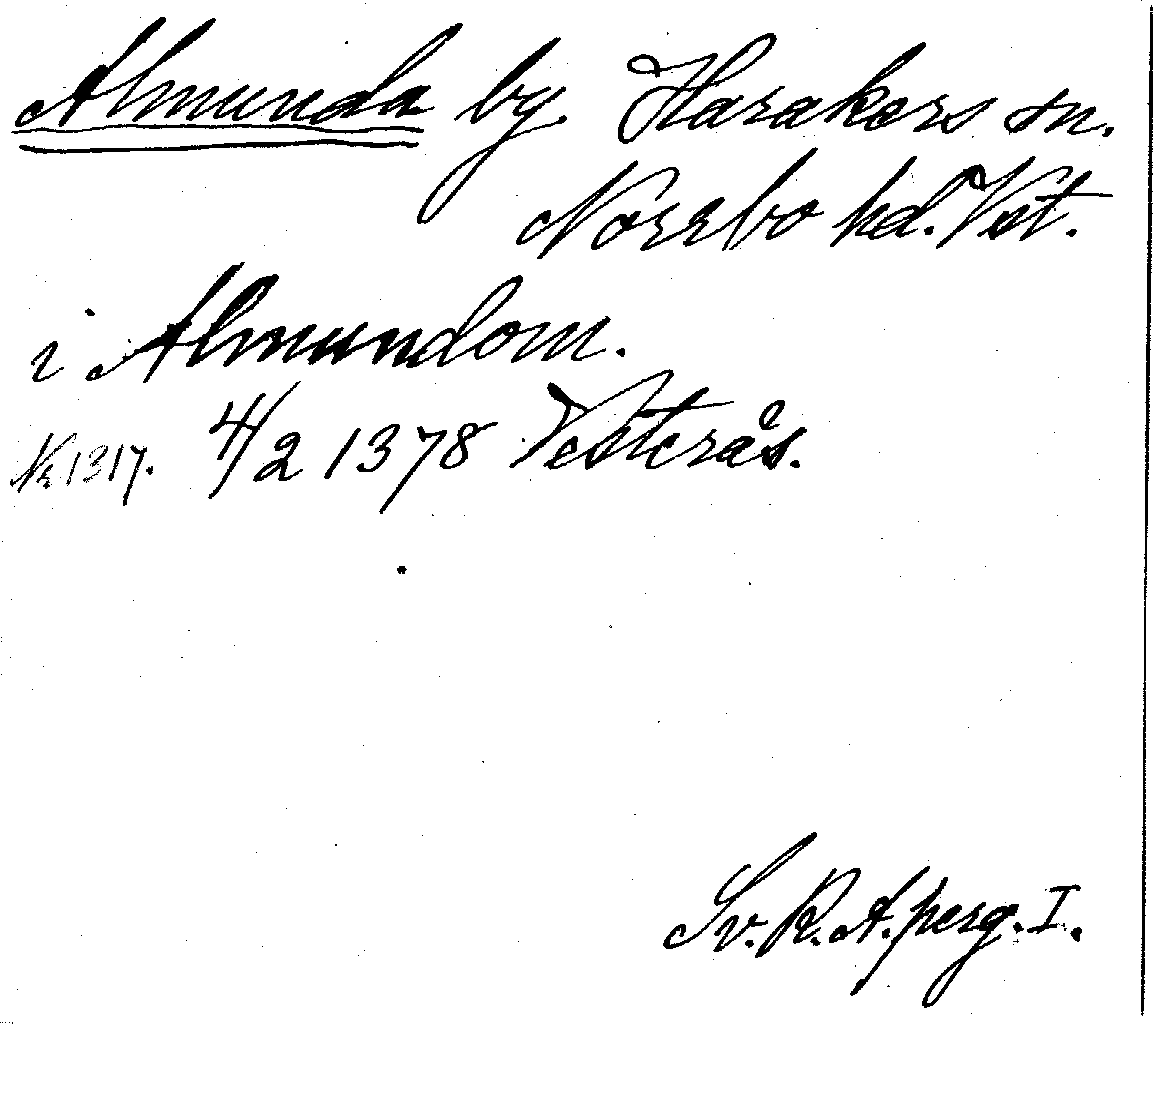 Almunda by. Harakers sn.
Norrbo hd. Vest.
i Almundom.
Nr 1317. 4/2 1378 Vesterås.
Sv. R. A. perg. I.